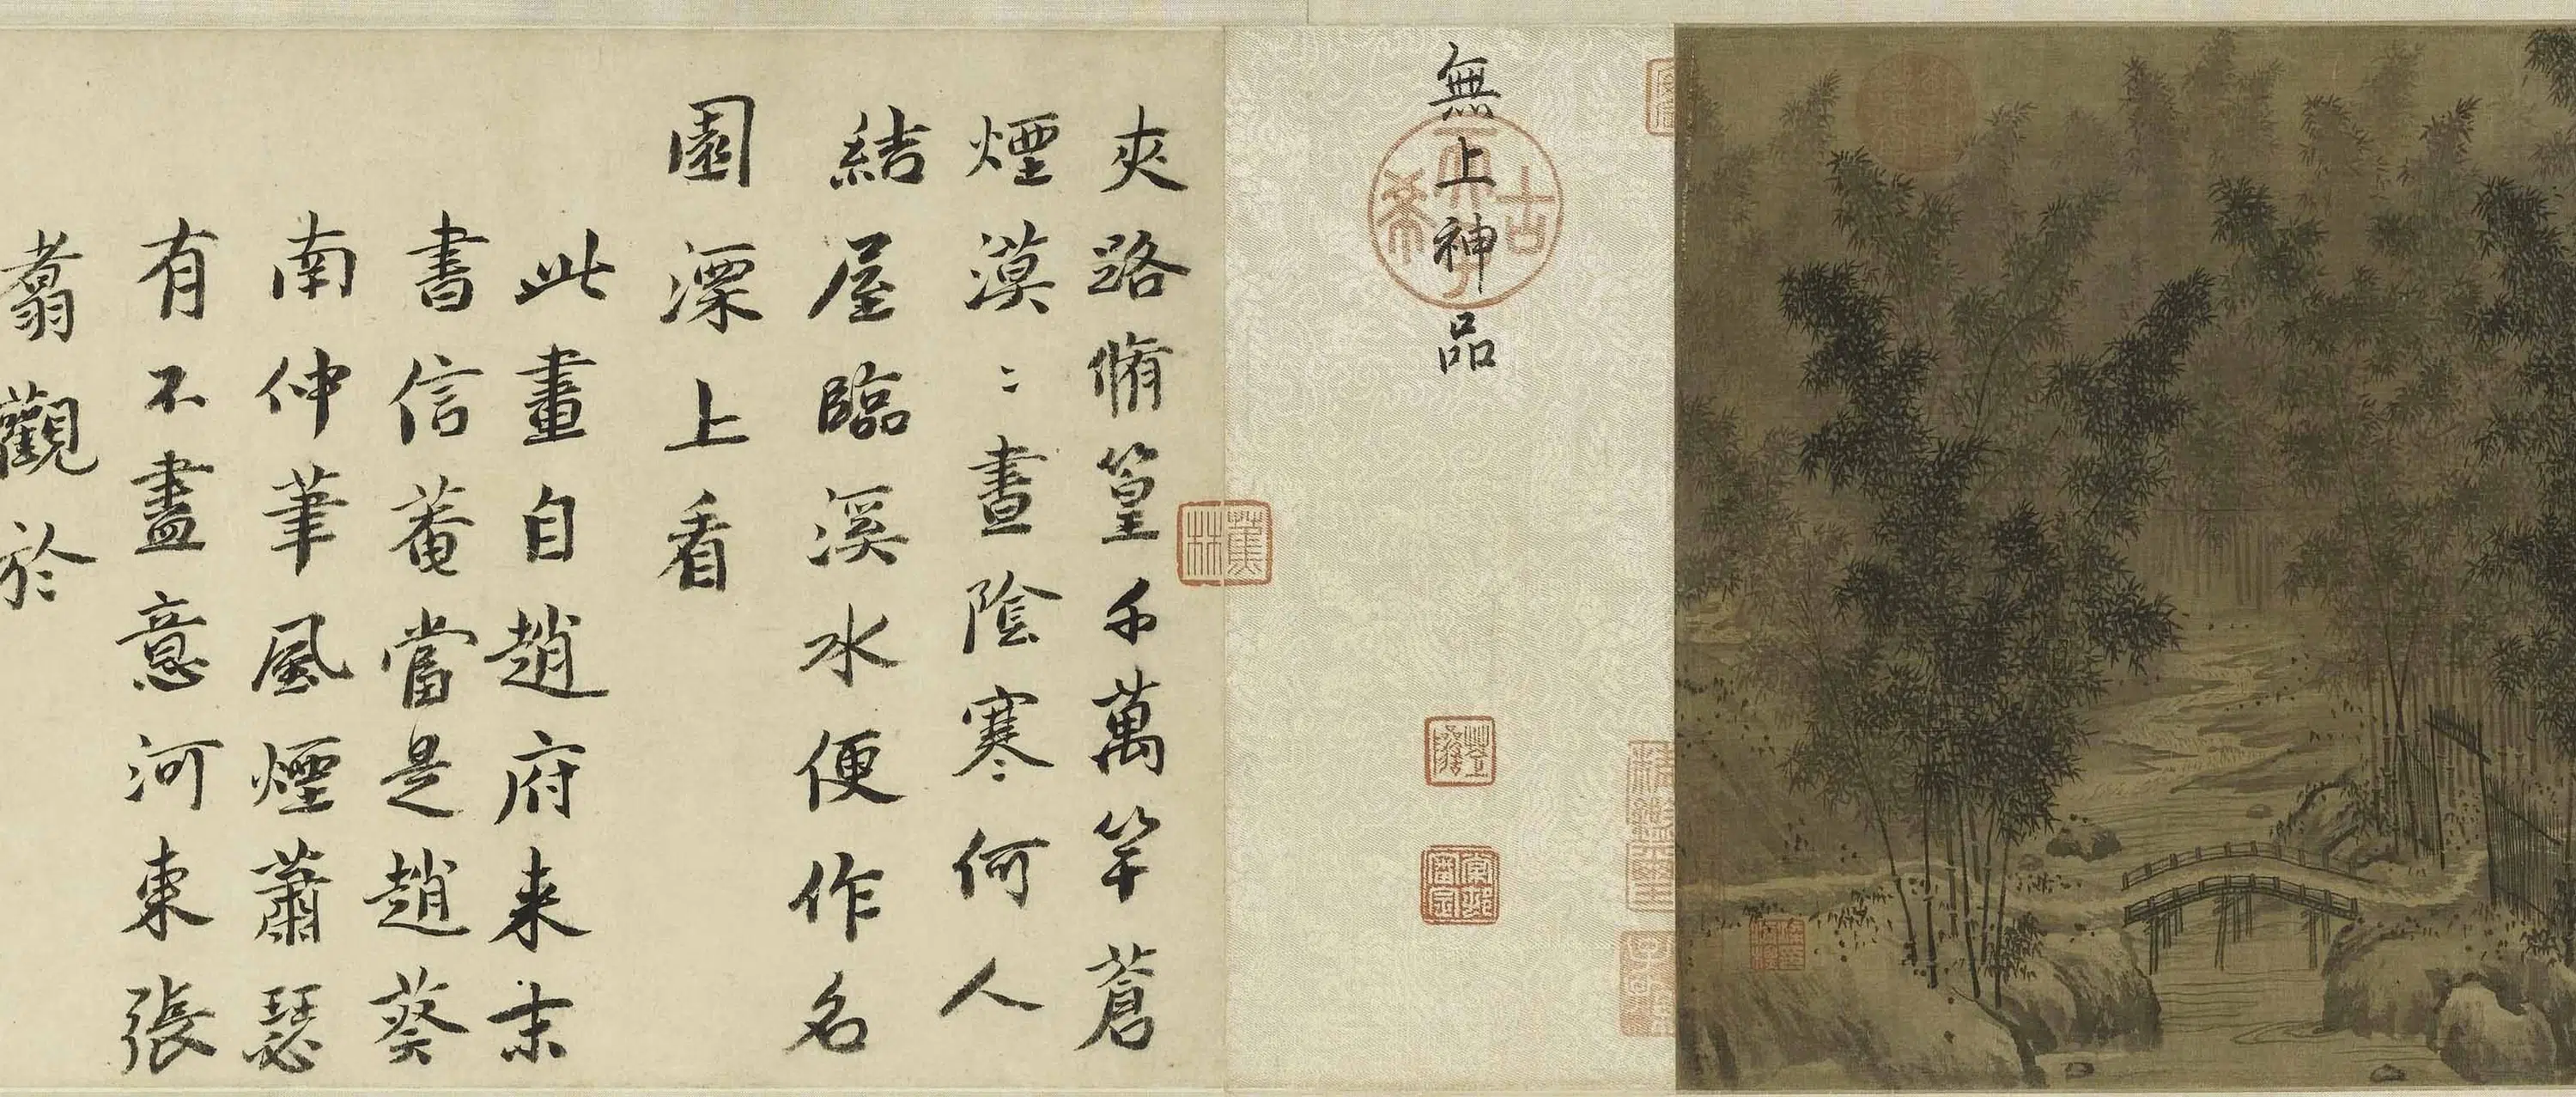 無上神品
古希天子
蕉林
夾路脩篁千萬竿蒼
煙漠〻晝陰寒何人
結屋臨溪水便作名
園漂上看
此畫自趙府来末
書信菴當是趙葵
南仲筆風煙蕭瑟
有不盡意河東張
翥觀於